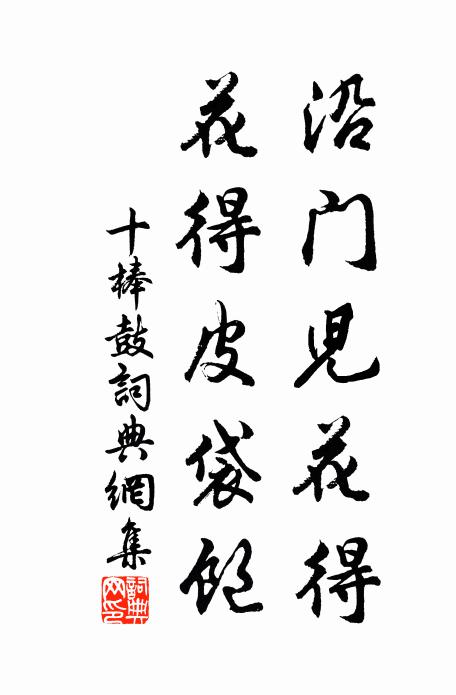 沿门児花得
花得皮袋飽
十棒鼓詞典網集
詞典
网印